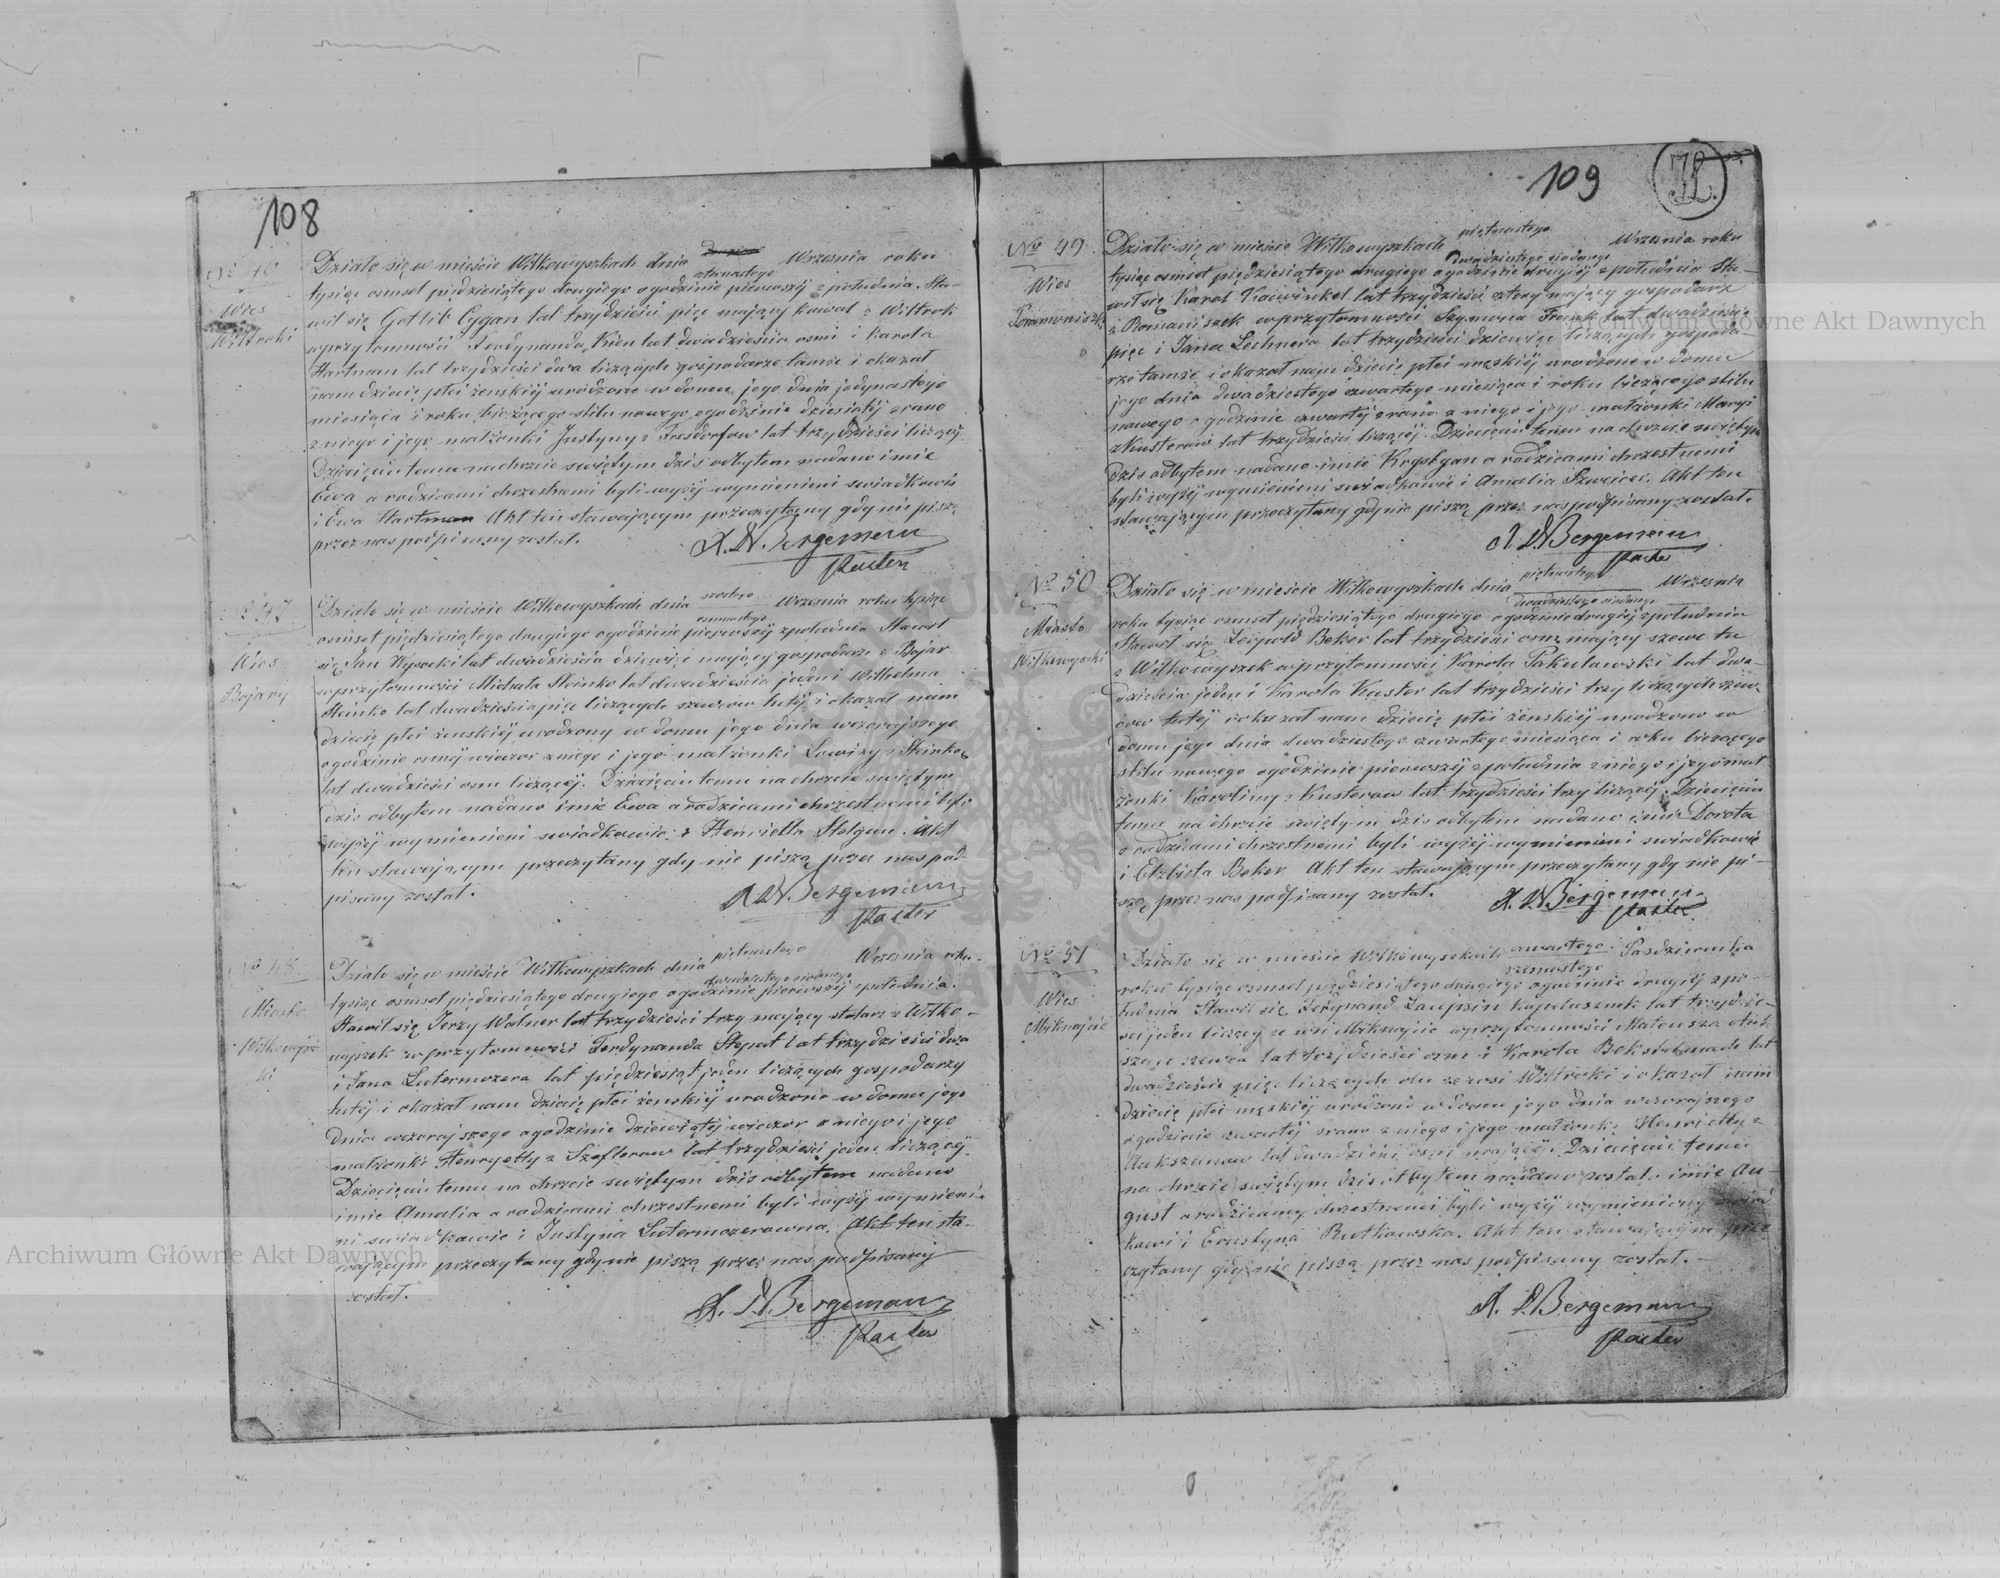 108
№ 46
Wies
Wiltroki
Działo się w mieście Wiłkowyszkach dnia czternastego Września roku
tysiąc osmset pięćdziesiątego drugiego o godzinie pierwszéj z południa. Sta-
wił się Gotlib Cygan lat trzydzieści pięć mający kowal z Wiltrok
w przytomności Ferdynanda Kien lat dwadzieścia osm i Karola
Hartman lat trzydzieści dwa liczących gospodarze tamże i okazał
nam dziecię płci żenskiéj urodzone w domu jego dnia jedynastego
miesiąca i roku bieżącego stilu nowego o godzinie dziesiątéj z rana
z niego i jego małżonki Justyny z lat trzydzieści liczącéj
Dziecięciu temu na chrzcie świętym dziś odbytem nadano imie
Ewa a rodzicami chrzestnemi byli wyżéj wymienieni swiadkowie
i Ewa Hartman Akt ten stawającym przeczytany gdy nie piszą
przez nas podpisany został.
A. W. Bergemann
Pastor
№ 47
Wies
Bojary
Działo się w mieście Wiłkowyszkach dnia szóstego osmnastego Września roku tysiąc
osmset pięćdziesiątego drugiego o godzinie pierwszéj z południa Stawił
się Jan Wysocki lat dwadzieścia dziewięć mający gospodarz z Bojar
w przytomności Michała Steinke lat dwadzieścia jeden i Wilhelma
Steinke lat dwadzieścia pięć liczących szewców tutéj i okazał nam
dziecię płci żenskiéj urodzony w domu jego dnia wczorajszego
o godzinie osméj wieczor z niego i jego małżonki Lowizy z Steinków
lat dwadzieści osm liczącéj. Dziecięciu temu na chrzcie świętym
dziś odbytem nadano imie Ewa a rodzicami chrzestnemi byli
wyżéj wymienieni swiadkowie i Henrietta Stelgun. Akt
ten stawającym przeczytany gdy nie piszą przez nas pod-
pisany został.
A. W. Bergemann
Pastor
№ 48
Miasto
Wiłkowysz-
ki
Działo się w mieście Wiłkowyszkach dnia piętnastego dwudziestego siodmego Września roku
tysiąc osmset pięćdziesiątego drugiego o godzinie pierwszéj z południa.
Stawił się Jerzy Walner lat trzydzieści trzy mający stolarz z Wiłko-
wyszek w przytomności Ferdynanda Stepat lat trzydzieści dwa
i Jana Lutermozera lat pięćdziesiąt jeden liczących gospodarzy
tutéj i okazał nam dziecię płci żenskiéj urodzone w domu jego
dnia wczorajszego o godzinie dziewiątéj wieczor z niego i jego
małżonki Henryetty z Szeflerow lat trzydzieści jeden liczącéj.
Dziecięciu temu na chrzcie świętym dziś odbytem nadano
imie Amalia a rodzicami chrzestnemi byli wyżéj wymienie-
ni swiadkowie i Justyna Lutermozerowna. Akt ten sta-
wającym przeczytany gdy nie piszą przez nas podpisany
został.
A. W. Bergemann
Pastor
109
№ 49
Wies
Działo się w mieście Wiłkowyszkach piętnastego dwudziestego siodmego Września roku
tysiąc osmset pięćdziesiątego drugiego o godzinie drugiéj z południa Sta-
wił się Karol Kawinkel lat trzydzieści cztery mający gospodarz
z Romaniszek w przytomności Szymona Frenk lat dwadzieścia
pięć i Jana Lechnera lat trzydzieści dziewięć liczących gospoda-
rze tamże i okazał nam dziecię płci męskiéj urodzone w domu
jego dnia dwudziestego czwartego miesiąca i roku bieżącego stilu
nowego o godzinie czwartéj z rana z niego i jego małżonki Maryi
z Kusterow lat trzydzieści liczącéj. Dziecięciu temu na chrzcie świętym
dziś odbytem nadano imie Krystyan a rodzicami chrzestnemi
byli wyżéj wymienieni swiadkowie i Amalia Szweicer. Akt ten
stawającym przeczytany gdy nie piszą przez nas podpisany został.
A. W. Bergemann
Pastor
№ 50
Miasto
Wiłkowyszki
Działo się w mieście Wiłkowyszkach dnia piętnastego dwudziestego siodmego Września
roku tysiąc osmset pięćdziesiątego drugiego o godzinie drugiéj z południa
Stawił się Leopold Beker lat trzydzieści osm mający szewc tu
z Wiłkowyszek w przytomności Karola Pakulawski lat dwa-
dzieścia jeden i Karola Kuster lat trzydzieści trzy liczących szew-
ców tutéj i okazał nam dziecię płci żenskiéj urodzone w
domu jego dnia dwudziestego czwartego miesiąca i roku bieżącego
stilu nowego o godzinie pierwszéj z południa z niego i jego mał-
żonki Karoliny z Kusterow lat trzydzieści trzy liczącéj. Dziecięciu
temu na chrzcie świętym dziś odbytem nadano imie Dorota
a rodzicami chrzestnemi byli wyżéj wymienieni swiadkowie
i Elzbieta Beker Akt ten stawającym przeczytany gdy nie pi-
szą przez nas podpisany został.
A. W. Bergemann
Pastor
№ 51
Wies
Miknajcie
Działo się w mieście Wiłkowyszkach czwartego szesnastego Pazdziernika
roku tysiąc osmset pięćdziesiątego drugiego o godzinie drugiéj z po-
łudnia Stawił się Ferdynand kapelusznik lat trzydzie-
sci jeden liczący ze wsi Miknajcie w przytomności Mateusza
szewca lat trzydzieści osm i Karola lat
dwadzieścia pięć liczących obu ze wsi Wiltroki i okazał nam
dziecię płci męskiéj urodzone w domu jego dnia wczorajszego
o godzinie czwartéj z rana z niego i jego małżonki Henrietty z
Aukszunow lat dwadzieści osm mającéj. Dziecięciu temu
na chrzcie świętym dziś odbytem nadano zostało imie Au-
gust a rodzicamy chrzestnemi byli wyżéj wymienieny swiad-
kowi i Ernstyna Rutkowska. Akt ten stawającym prze-
czytany gdy nie piszą przez nas podpisany został.
A. W. Bergemann
Pastor
Archiwum Główne Akt Dawnych
Archiwum Główne Akt Dawnych